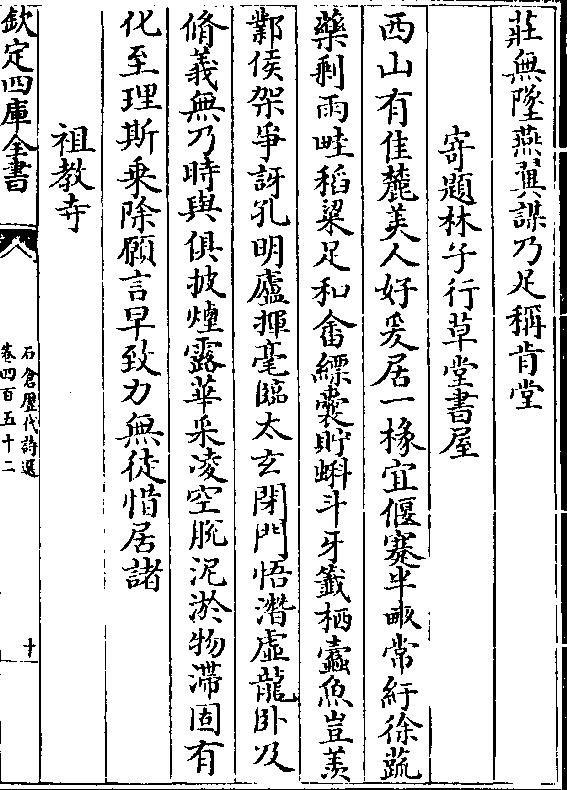 莊無墜燕翼謀乃足稱肯堂
寄題林子行草堂書屋
西山有佳麓美人好爰居一椽宜偃蹇半畝常紆徐蔬
藥剩雨畦稻粱足和畬縹囊貯蝌斗牙籤栖蠹魚豈羨
鄴侯架爭訝孔明廬揮毫臨太玄閉門悟潛虛龍卧及
脩義無乃時與俱披煙露華采凌空脫泥淤物滯固有
化至理斯乗除願言早致力無徒惜居諸
祖教寺
欽定四庫全書
石倉歷代詩選
卷四百五十二
十